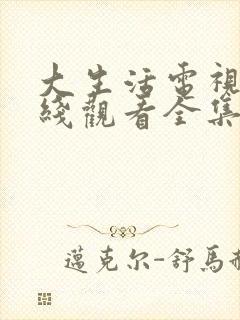 大生活電視
綫觀看全集
邁克尔-舒馬赫